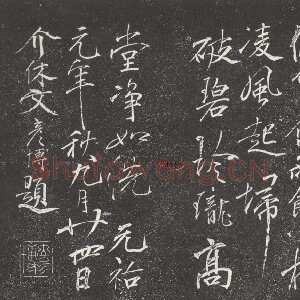 凌風起掃
破碧玲瓏高
堂淨如洗 元祐
元年秋九月廿四日
介休文彥博題
shufawang.CN